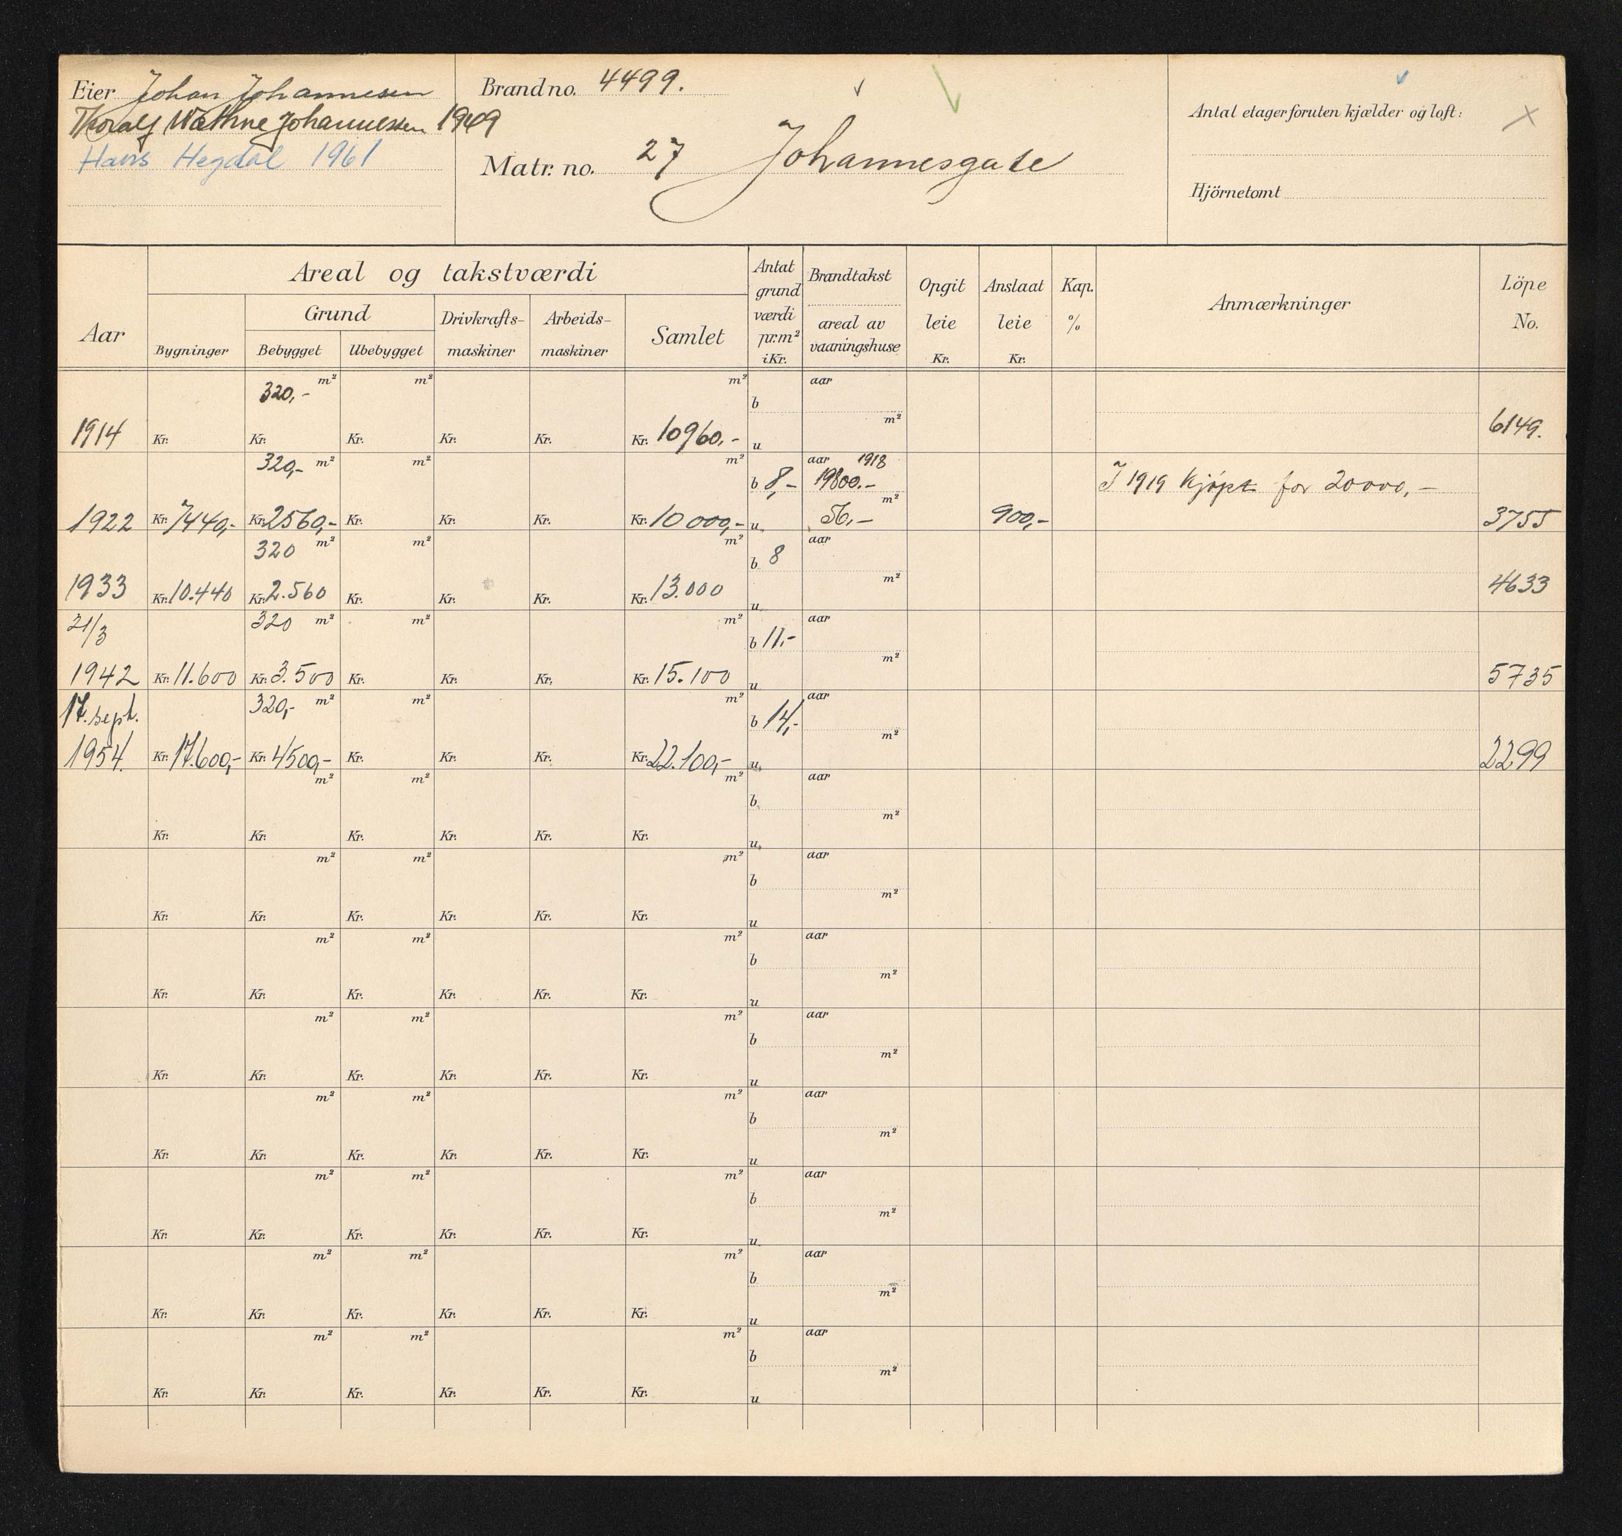 Eier Johan Johannesen
Thoralf Wathne Johannessen 1949
Hans Hegdal 1961
Brandno. 4499.
Matr. no. 27 Johannesgate
Antal etager foruten kjælder og loft: X
Hjörnetomt
Aar
Areal og takstværdi
Bygninger
Grund
Bebygget Ubebygget
Drivkrafts-maskiner
Arbeids-maskiner
Samlet
Antat grund værdi pr.m² i Kr.
Brandtakst
areal av vaaningshuse
Opgit leie Kr.
Anslaat leie Kr.
Kap. %
Anmærkninger
Löpe No.
320,- m² m² m² aar
b
m²
1914 Kr. Kr. Kr. Kr. Kr. Kr. 10960,- u 6149.
320,- m² m² m² aar 1918
b 8,- 19800.-
I 1919 kjøpt for 20000,-
m²
1922 Kr. 7440,- Kr. 2560,- Kr. Kr. Kr. Kr. 10000,- u 56,- 900,- 3755
320 m² m² m² b 8 aar
m²
1933 Kr. 10.440 Kr. 2.560 Kr. Kr. Kr. Kr. 13.000 u 4633
21/3 320 m² m² m² b 11,- aar
m²
1942 Kr. 11.600 Kr. 3.500 Kr. Kr. Kr. Kr. 15.100 u 5735
17. sept. 320,- m² m² m² b 14,- aar
m²
1954. Kr. 17.600,- Kr. 4500,- Kr. Kr. Kr. Kr. 22.100,- u 2299
m² m² m² aar
b
m²
Kr. Kr. Kr. Kr. Kr. Kr. u
m² m² m² aar
b
m²
Kr. Kr. Kr. Kr. Kr. Kr. u
m² m² m² aar
b
m²
Kr. Kr. Kr. Kr. Kr. Kr. u
m² m² m² aar
b
m²
Kr. Kr. Kr. Kr. Kr. Kr. u
m² m² m² aar
b
m²
Kr. Kr. Kr. Kr. Kr. Kr. u
m² m² m² aar
b
m²
Kr. Kr. Kr. Kr. Kr. Kr. u
m² m² m² aar
b
m²
Kr. Kr. Kr. Kr. Kr. Kr. u
m² m² m² aar
b
m²
Kr. Kr. Kr. Kr. Kr. Kr. u